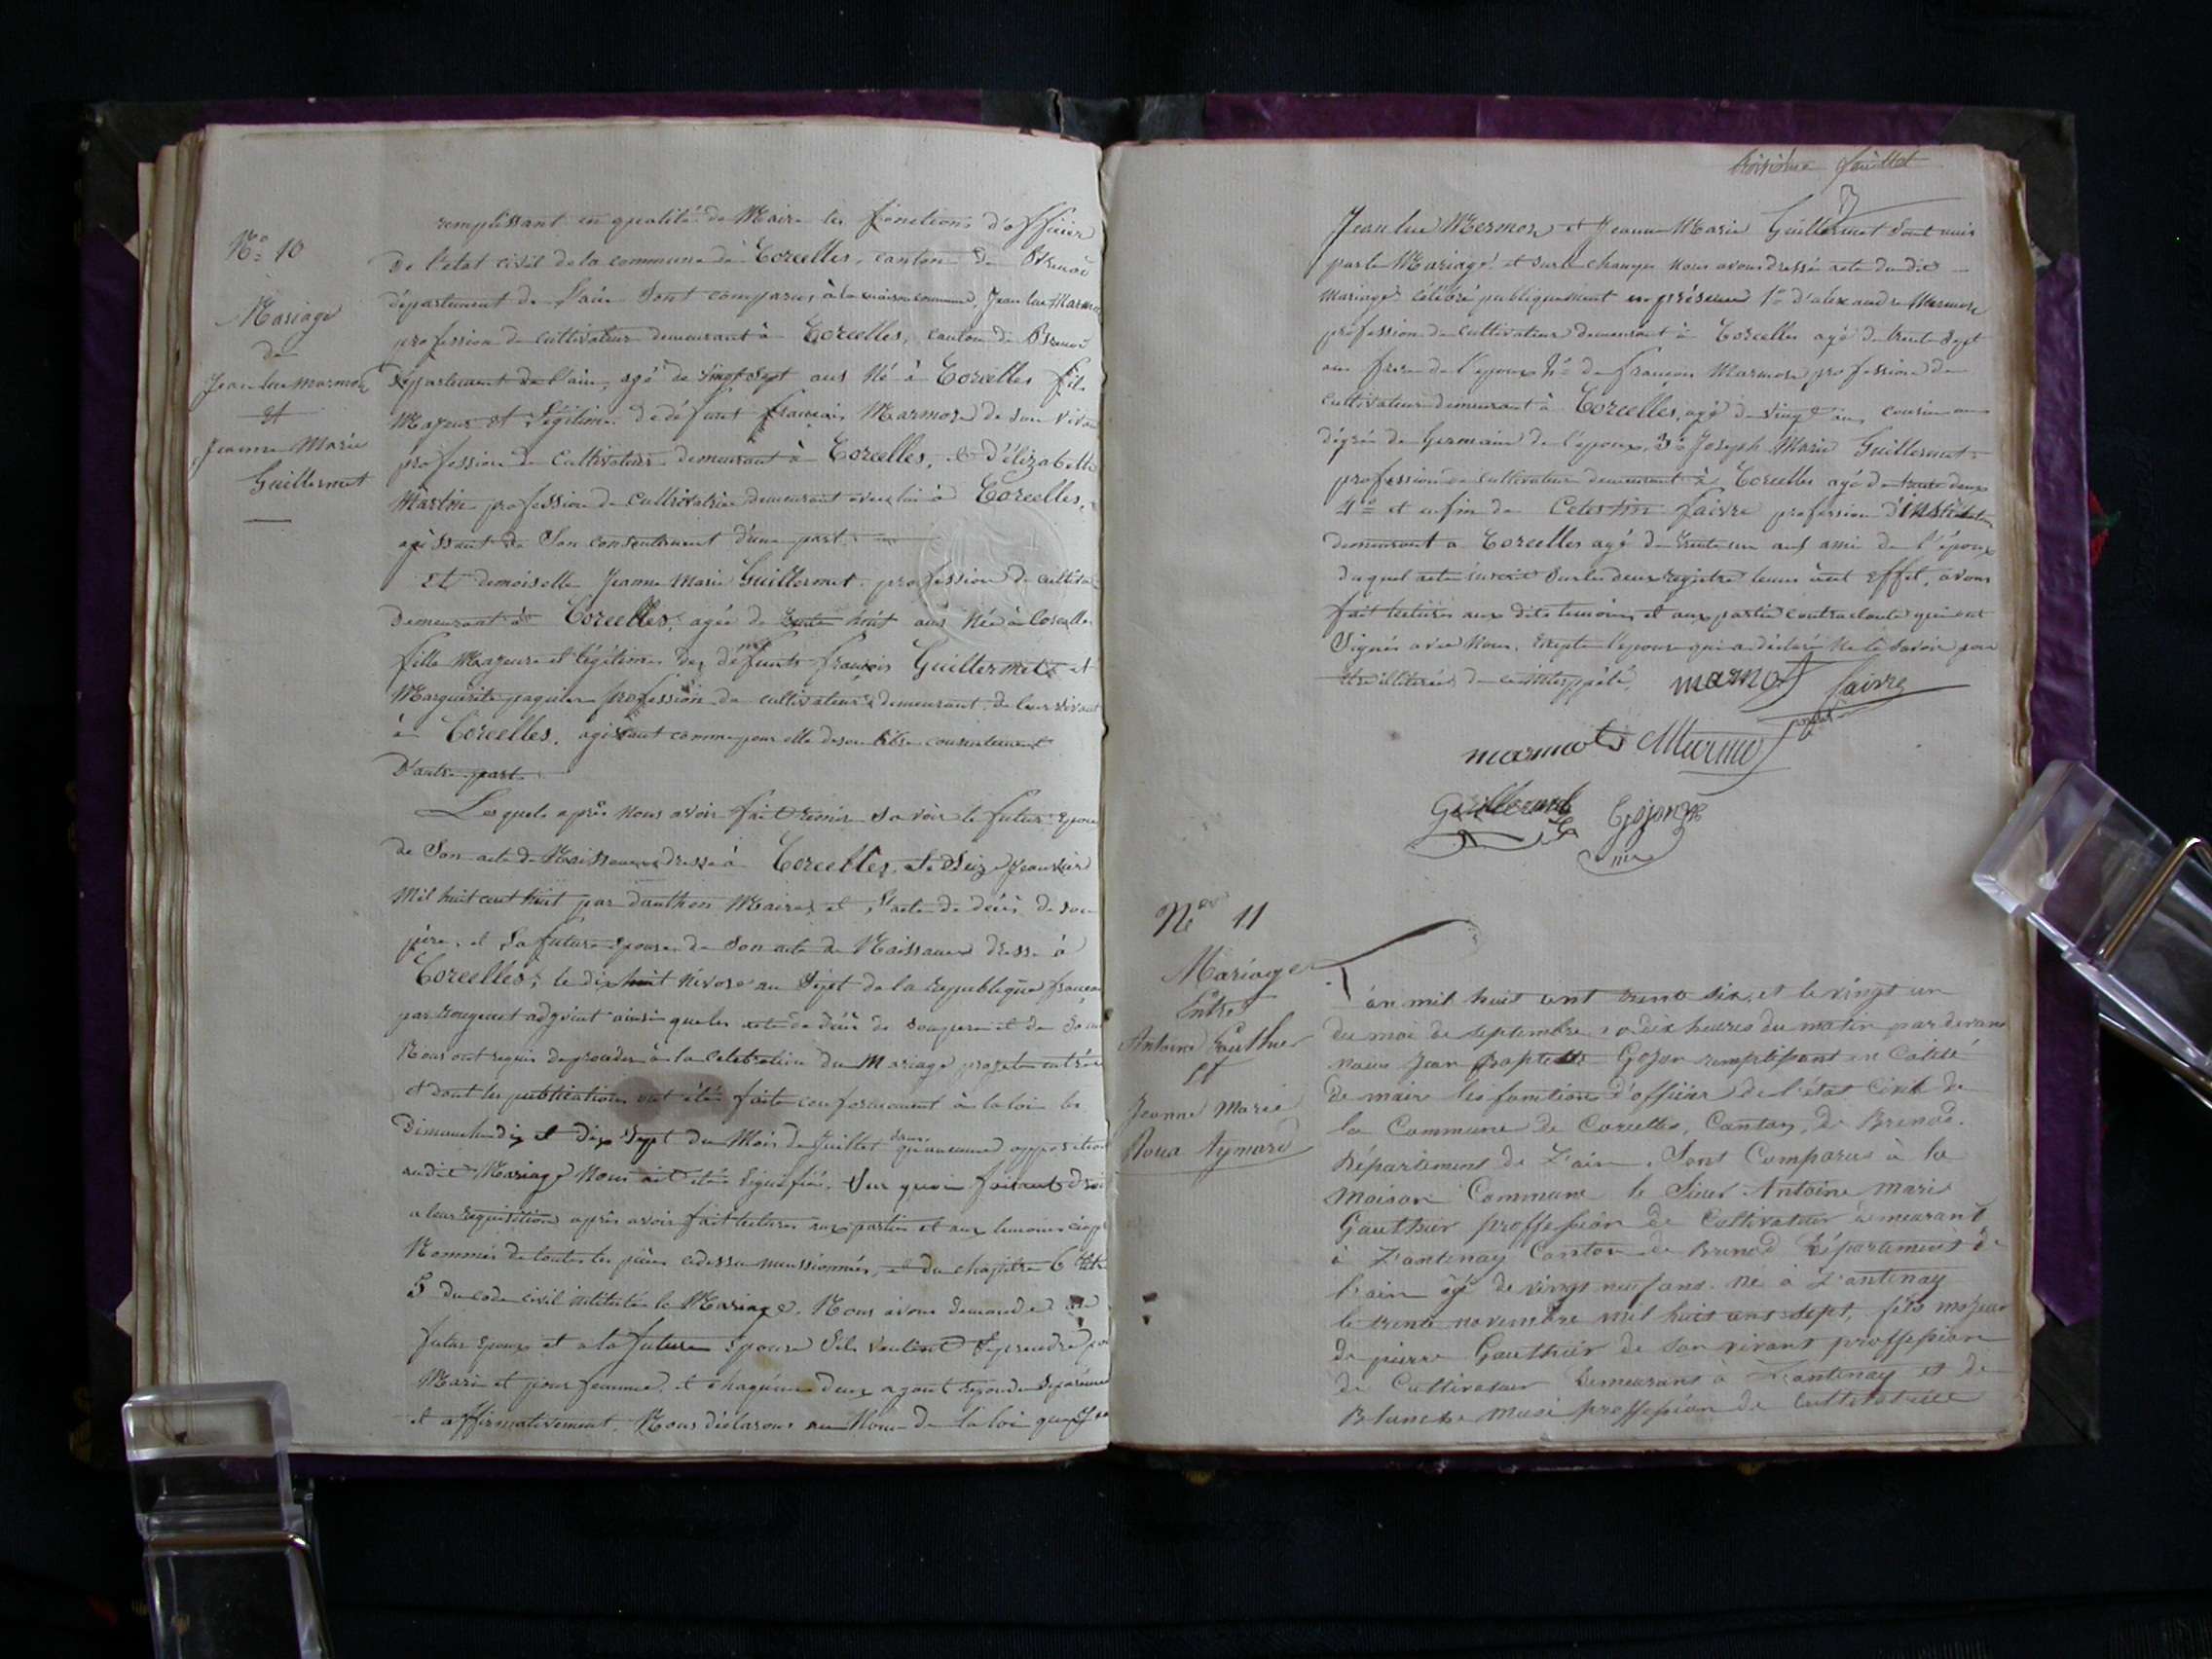 No 10
Mariage
de
Jean luc marmoz
et
Jeanne Marie
Guillermet
remplissant en qualité de Maire les fonctions d'officier
De l'etat civil de la commune de Corcelles, canton de Brenod
département de l'ain Sont comparus, à la maison commune, Jean luc Marmoz
profession de cultivateur demeurant à Corcelles, canton de Brenod
département de l'ain, agé de vingt sept ans Né à Corcelles fils
Majeur et légitime de défunt françois Marmoz de son vivan
profession de Cultivateur demeurant à Corcelles, et d'élizabette
Martin profession de Cultivatrice demeurant avec lui à Corcelles,
agissant de Son consentement d'une part.
Et demoiselle Jeanne Marie Guillermet profession de cultiva
Demeurant à Corcelles, agée de trente huit ans Née à Corcelles
fille Majeure et légitime des défunts françois Guillermet et
Marguerite paquier profession de cultivateurs demeurant de leur vivant
à Corcelles, agissant comme pour elle de son libre consentement
D'autre part.
Lesquels après Nous avoir fait remis Savoir le futur Epoux
de Son acte de Naissance dressé à Corcelles, le Seize Janvier
Mil huit cent huit par danthon Maire, et l'acte de décès de son
père, et la future Epouse de Son acte de Naissance dressé à
Corcelles, le dix huit Nivose an Sept de la république françai
par adjoint ainsi que les actes de décès de son pere et de Sa
Nous ont requis de proceder à la celebration du Mariage projeté entr'eux
et dont les publications ont été faite conformement à la loi les
Dimanche dix et dix Sept du Mois de Juillet sans qu'aucune opposition
audit Mariage Nous ait été Signifiée. Sur quoi faisant droit
a leur requisition après avoir fait lecture aux parties et aux temoins
Nommés de toutes les pièces cidessus mensionnées, et du chapitre 6 titre
5 du code civil intitulé le Mariage. Nous avons demandé au
futur Epoux et a la future Epouse s'ils veulent Se prendre pour
Mari et pour femme, et chaqu'un d'eux ayant repondu Separément
et affirmativement, Nous déclarons au Nom de la loi que
troisieme feuillet
Jean luc Mermoz et Jeanne Marie Guillermet Sont unis
par le Mariage et sur le champs Nous avons dressé acte dudit
Mariage célébré publiquement en présence 1o d'alexandre Marmoz
profession de cultivateur demeurant à Corcelles agé de trente Sept
ans frere de l'époux 2o de françois Marmoz profession de
cultivateur demeurant à Corcelles, agé de vingt ans, cousin au
dégrés de Germain de l'époux, 3o Joseph Marie Guillermet
profession de cultivateur demeurant à Corcelles agé de trente deux
4o et enfin de Celestin faivre profession d'instituteur
demeurant a Corcelles agé de trente un ans ami de l'époux
duquel acte inscrit Sur les deux registre tenus à cet Effet, avons
fait lecture aux dits temoins et aux parties contractante qui ont
Signés avec Nous, excepté l'épouse qui a déclaré Ne le Savoir pour
être illitérée de ce interpellée.
marmot faivre
marmot Marmot
Guillermet Gojon
No 11
Mariage
Entre
Antoine Gauthier
Et
Jeanne Marie
Aymard
L'an mil huit cent trente six, et le vingt un
du moi de septembre a dix heures du matin par devant
nous Jean Baptiste Gojon remplissant en calité
de maire les fonctions d'officier de l'état Civil de
la Commune de Corcelles, Canton de Brenod.
Département de L'ain. Sont Comparus à la
maison Commune le Sieur Antoine marie
Gauthier proffession de Cultivateur demeurant
à Lantenay Canton de Brenod Département de
l'ain âgé de vingt neuf ans. Né à Lantenay
le trente novembre mil huit cent sept, fils majeur
de pierre Gauthier de son vivant proffession
de Cultivateur Demeurant à Lantenay et de
Blanche proffession de Cultivatrice